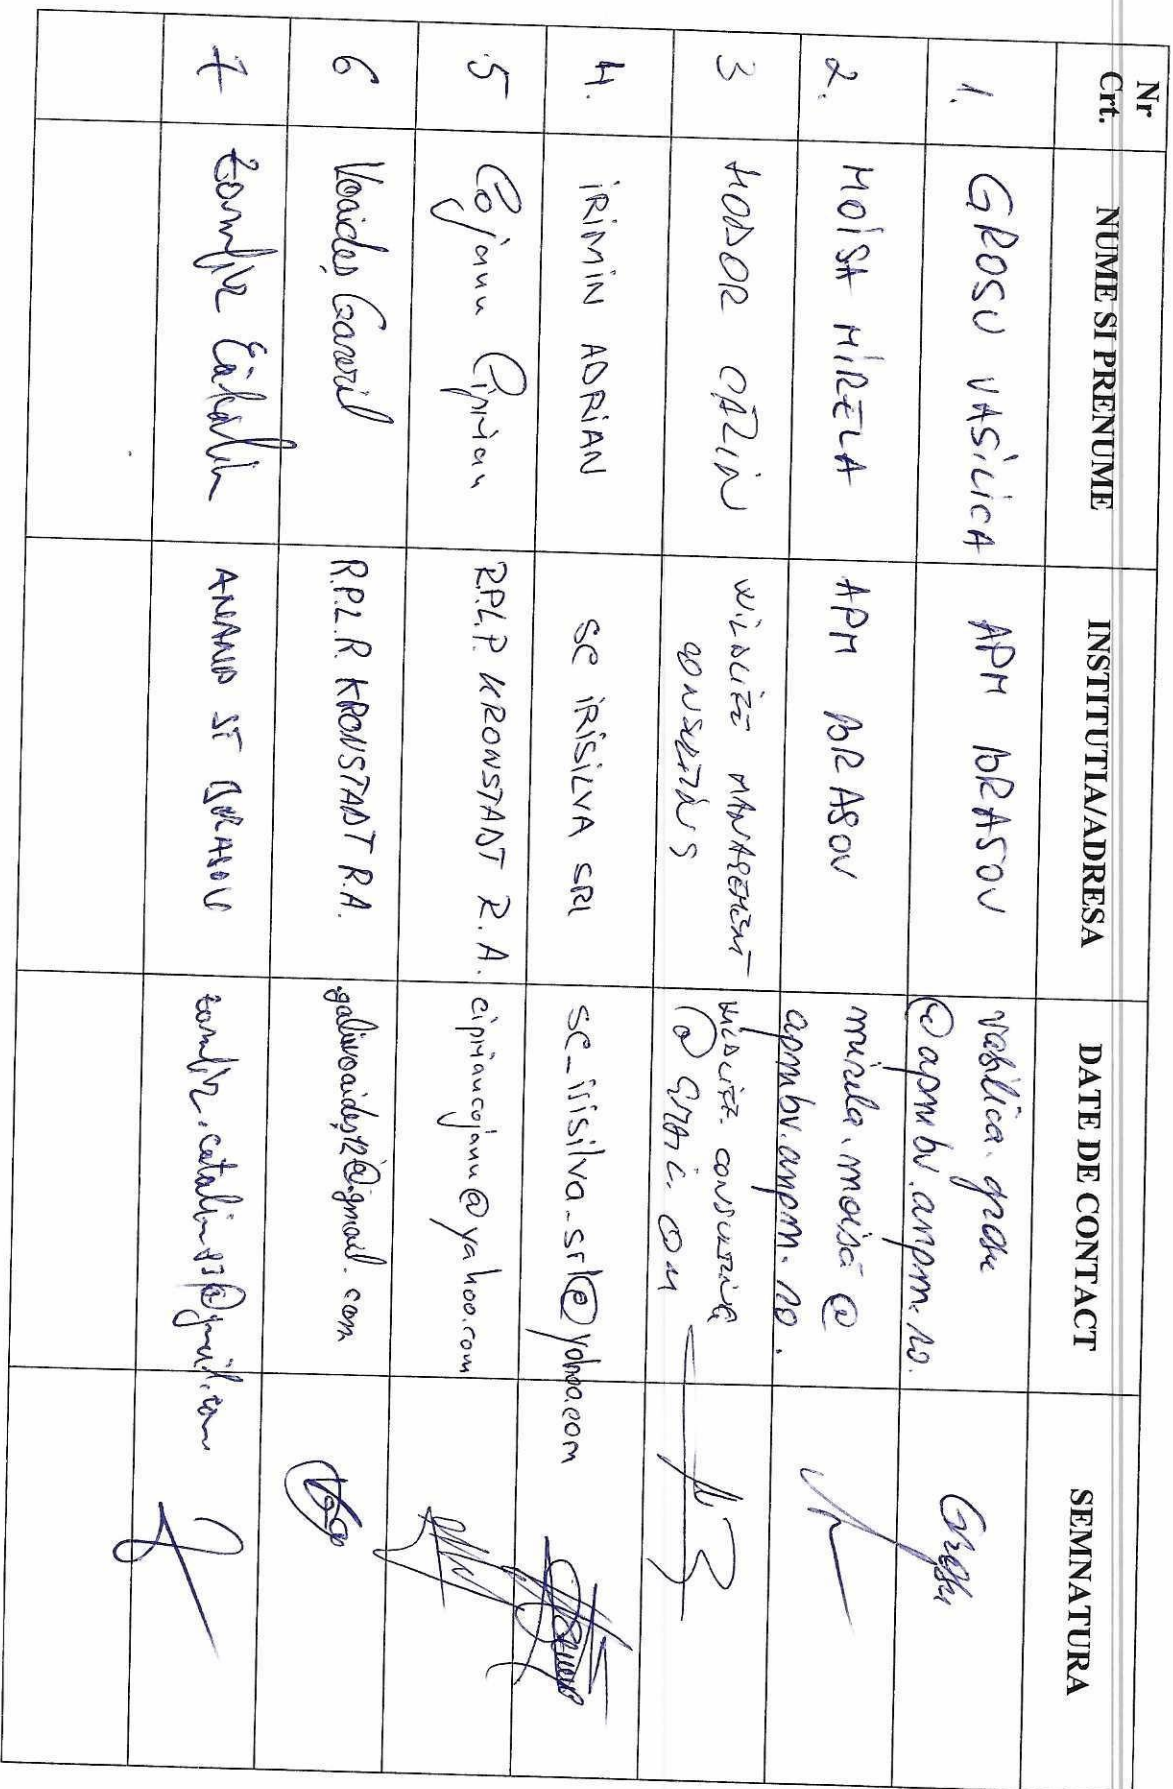 Nr
Crt.
NUME SI PRENUME
INSTITUTIA/ADRESA
DATE DE CONTACT
SEMNATURA
1.
GROSU VASILICA
APM BRASOV
vasilica.grosu
@apmbv.anpm.ro.
Grosu
2.
MOISA MIRELA
APM BRASOV
mirela.moisa@
apmbv.anpm.ro.
3
HODOR CĂLIN
WILDLIFE MANAGEMENT
CONSULTING
WILDLIFE.CONSULTING
@GMAIL.COM
4.
IRIMIN ADRIAN
SC IRISILVA SRL
sc_irisilva_srl@yahoo.com
5
Cojanu Ciprian
R.P.L.P. KRONSTADT R.A.
cipriancojanu@yahoo.com
6
Voaideș Gavril
R.P.L.R KRONSTADT R.A.
@gmail.com
7
Zamfir Cătălin
ANANP ST BRASOV